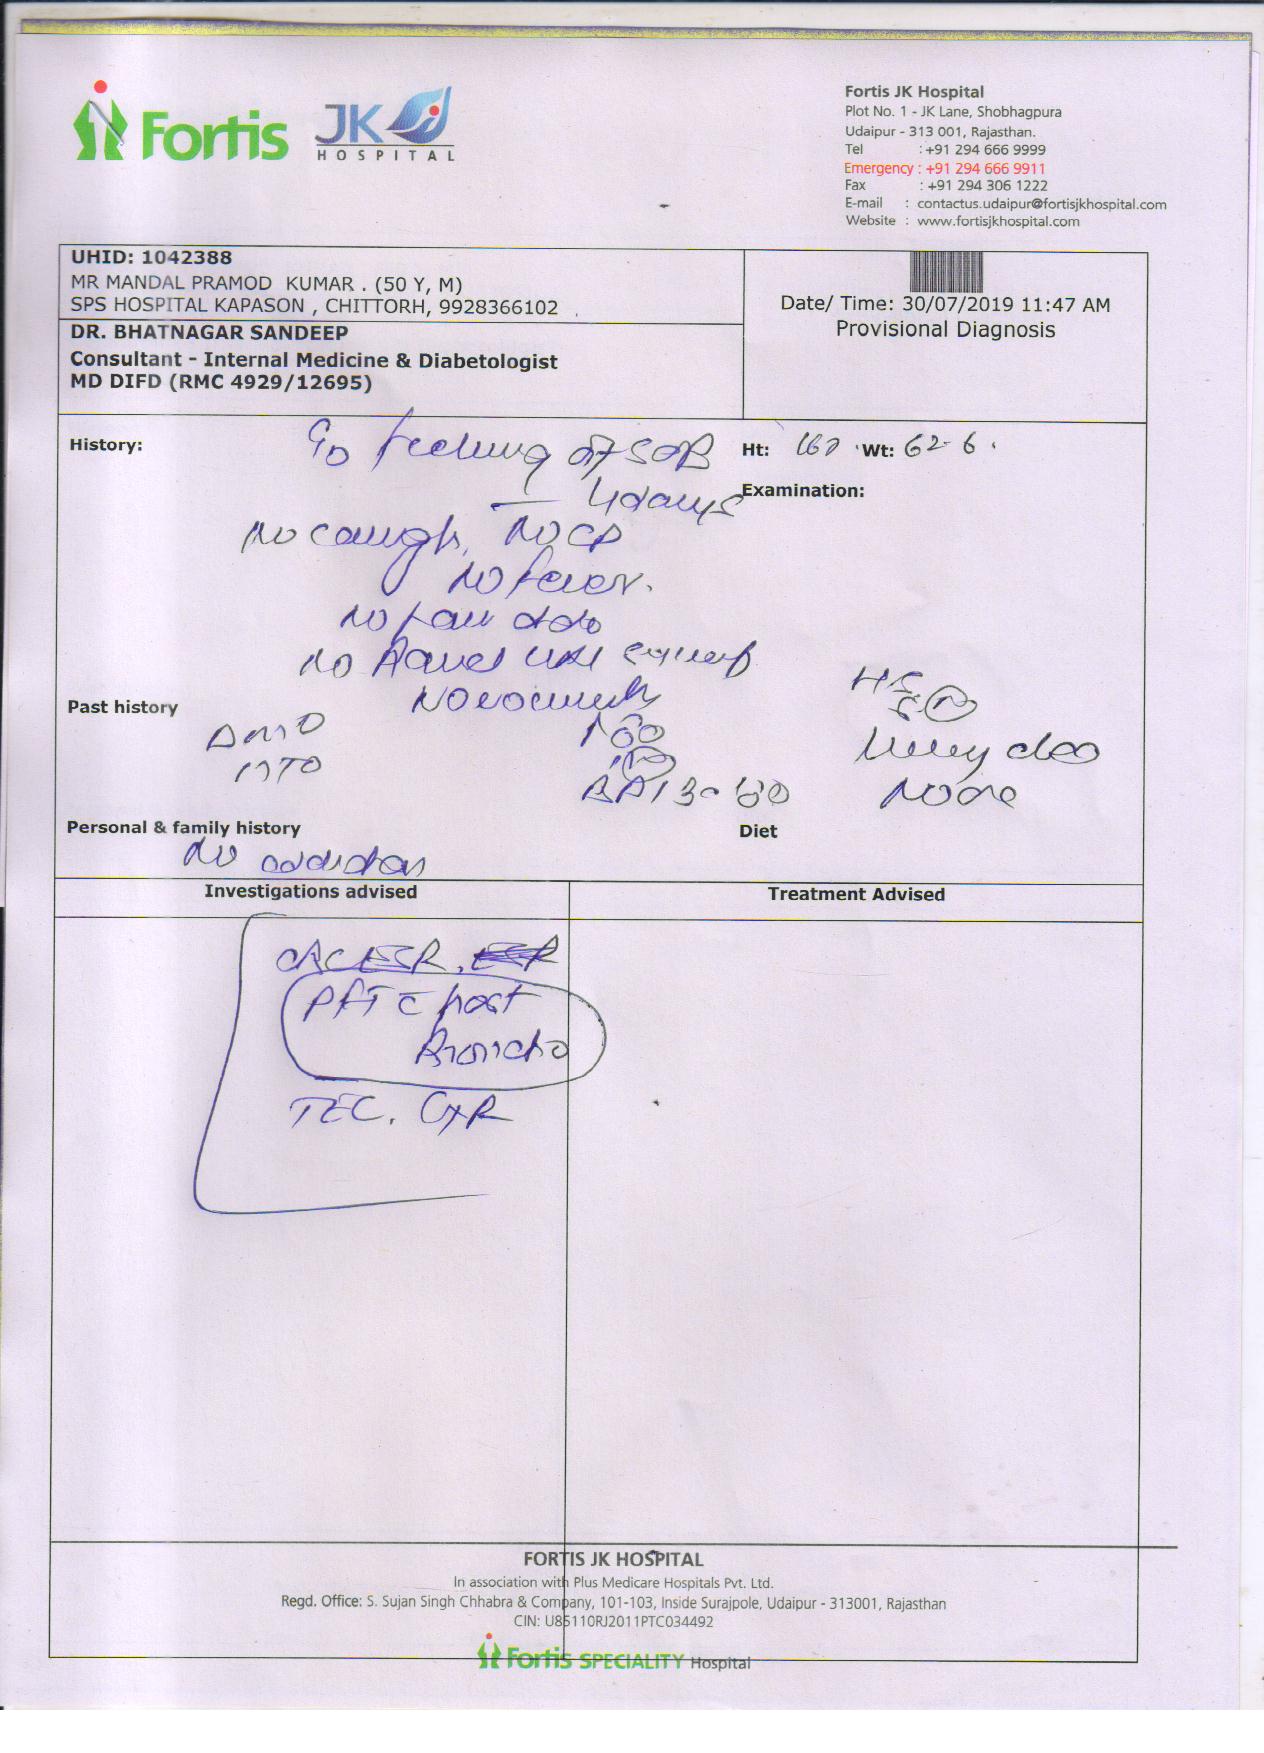 Fortis
JK
HOSPITAL
Fortis JK Hospital
Plot No. 1 - JK Lane, Shobhagpura
Udaipur - 313 001, Rajasthan.
Tel : +91 294 666 9999
Emergency : +91 294 666 9911
Fax : +91 294 306 1222
E-mail : contactus.udaipur@fortisjkhospital.com
Website : www.fortisjkhospital.com
UHID: 1042388
MR MANDAL PRAMOD KUMAR . (50 Y, M)
SPS HOSPITAL KAPASON , CHITTORH, 9928366102
DR. BHATNAGAR SANDEEP
Consultant - Internal Medicine & Diabetologist
MD DIFD (RMC 4929/12695)
Date/ Time: 30/07/2019 11:47 AM
Provisional Diagnosis
History: feeling of SOB
4 days
No cough, No CP
No fever.
No
No
Ht: Wt: 62.6
Examination:
Past history
Personal & family history
No addiction
Diet
None
Investigations advised
Treatment Advised
CBC ESR,
PFT c post
Broncho
TEC, CXR
FORTIS JK HOSPITAL
In association with Plus Medicare Hospitals Pvt. Ltd.
Regd. Office: S. Sujan Singh Chhabra & Company, 101-103, Inside Surajpole, Udaipur - 313001, Rajasthan
CIN: U85110RJ2011PTC034492
Fortis SPECIALITY Hospital